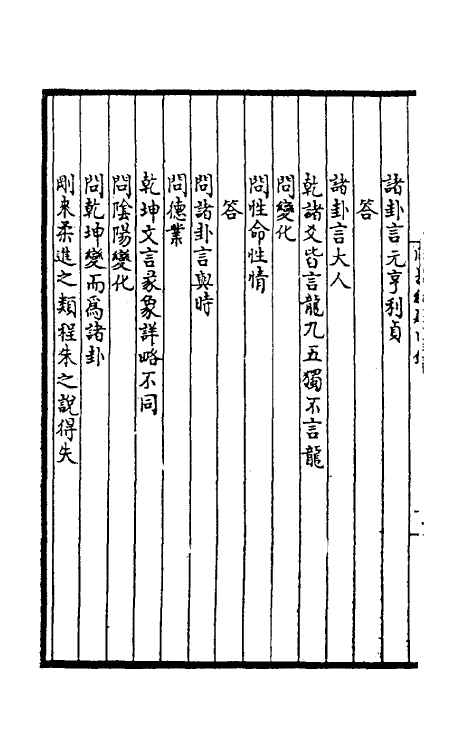 諸卦言元亨利貞
答
諸卦言大人
乾諸爻皆言龍九五獨不言龍
問變化
問性命性情
答
問諸卦言與時
問德業
乾坤文言彖象詳略不同
問陰陽變化
問乾坤變而爲諸卦
剛來柔進之類程朱之說得失